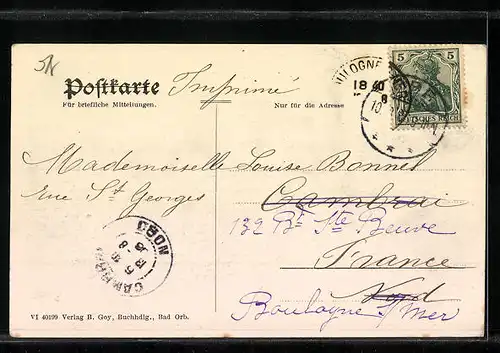 Postkarte Imprimé
Für briefliche Mitteilungen. Nur für die Adresse
5 5
DEUTSCHES REICH
Mademoiselle Louise Bonnel
rue St Georges
Cambrai
132 Bd Ste Beuve
France
Nord
Boulogne s/mer
CAMBRAI
NORD
VI 40199 Verlag B. Goy, Buchhdlg., Bad Orb.